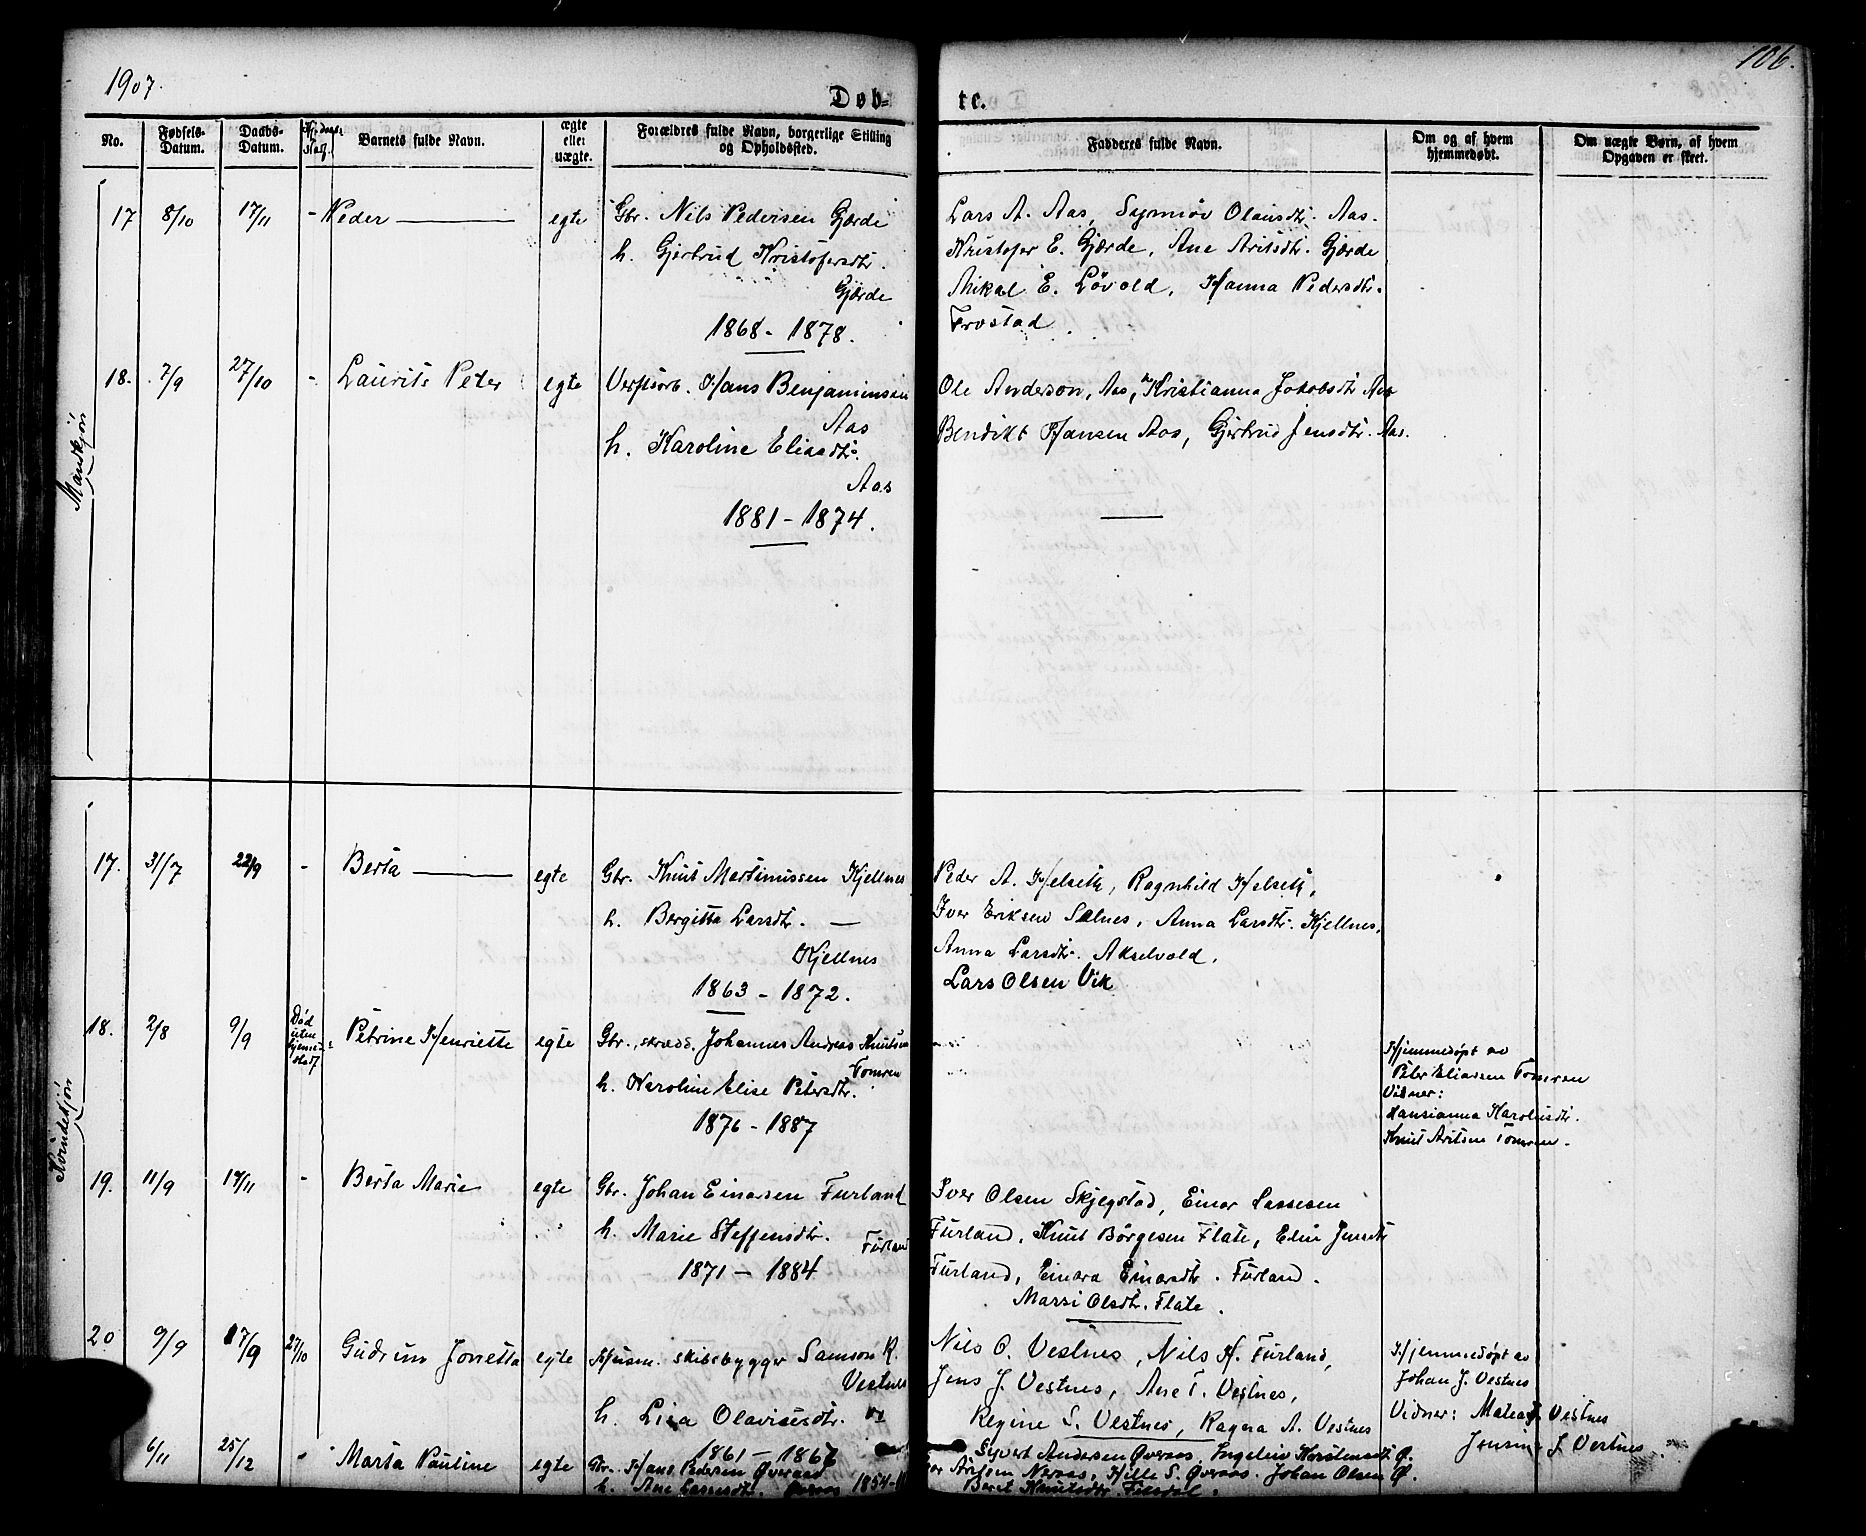 1907.
106.
Døb-
te.
No.
Fødsels-
Datum.
Daabs-
Datum.
Barnets fulde Navn.
ægte
eller
uægte.
Forældres fulde Navn, borgerlige Stilling
og Opholdssted.
Fadderes fulde Navn.
Om og af hvem
hjemmedøbt.
Om uægte Børn, af hvem
Opgaven er skeet.
Mandkjøn
17 8/10 17/11 - Peder egte Gbr. Nils Pedersen Gjærde
h. Gjertrud Kristofersdtr.
Gjærde
1868 - 1878.
Lars A. Aas, Synnöv Olausdtr. Aas.
Kristofer E. Gjærde, Ane Ariksdtr. Gjærde
Mikal E. Lövold, Hanna Pedersdtr.
Frostad
18. 7/9 27/10 - Laurits Peter egte Hans Benjaminsen
Aas
h. Karoline Eliasdtr.
Aas
1881 - 1874.
Ole Anderson, Aas, Kristianna Jakobsdtr Aas
Bendikt Hansen Aas, Gjertrud Jensdtr. Aas.
Kvindekjøn
17. 31/7 22/9 - Berta egte Gbr. Knut Martinussen Kjellnes
h. Bergitta Larsdtr. -
Kjellnes
1863 - 1872.
Peder A. Helseth, Ragnhild Helseth,
Iver Eriksen Salnes, Anna Larsdtr. Kjellnes,
Anna Larsdtr. Akselvold,
Lars Olsen Vik
18. 2/8 9/9 Död
uten
Petrine Henriette egte Gbr., skrædd. Johannes Andreas Knutsen
Tomren
h. Karoline Elise Petersdtr.
1876 - 1887
Hjemmedöpt av
Peter Eliassen Tomren
Vidner:
Hansianna Karolusdtr.
Knut Ariksen Tomren -
19. 11/9 17/11 - Berta Marie egte Gbr. Johan Einarsen Furland
h. Marie Steffensdtr. Furland
1871 - 1884
Iver Olsen Skjegstad, Einar Lassesen
Furland, Knut Börgesen Flate, Elin Jensdtr
Furland, Einara Einarsdtr. Furland.
Marsi Olsdtr. Flate.
20 9/9 17/9 27/10 Gudrun Jonetta egte Husm. skibsbygger Samson K.
Vestnes
h. Lisa Olavisesdtr.
1861 - 1867
Nils O. Vestnes, Nils H. Furland,
Jens J. Vestnes, Ane T. Vestnes,
Regine S. Vestnes, Ragna A. Vestnes
Hjemmedöpt av
Johan J. Vestnes
Vidner: Mateas J. Vestnes
Jensine J. Vestnes
6/11 25/12 - Marta Pauline egte Gbr. Hans Pedersen Øveraas
h. Ane Lassesdtr. 1854-
Syvert Andersen Øveraas Ingelin Karstensdtr. Ø.
Hille S. Øveraas. Johan Olsen Ø.
Berit Knutsdtr.